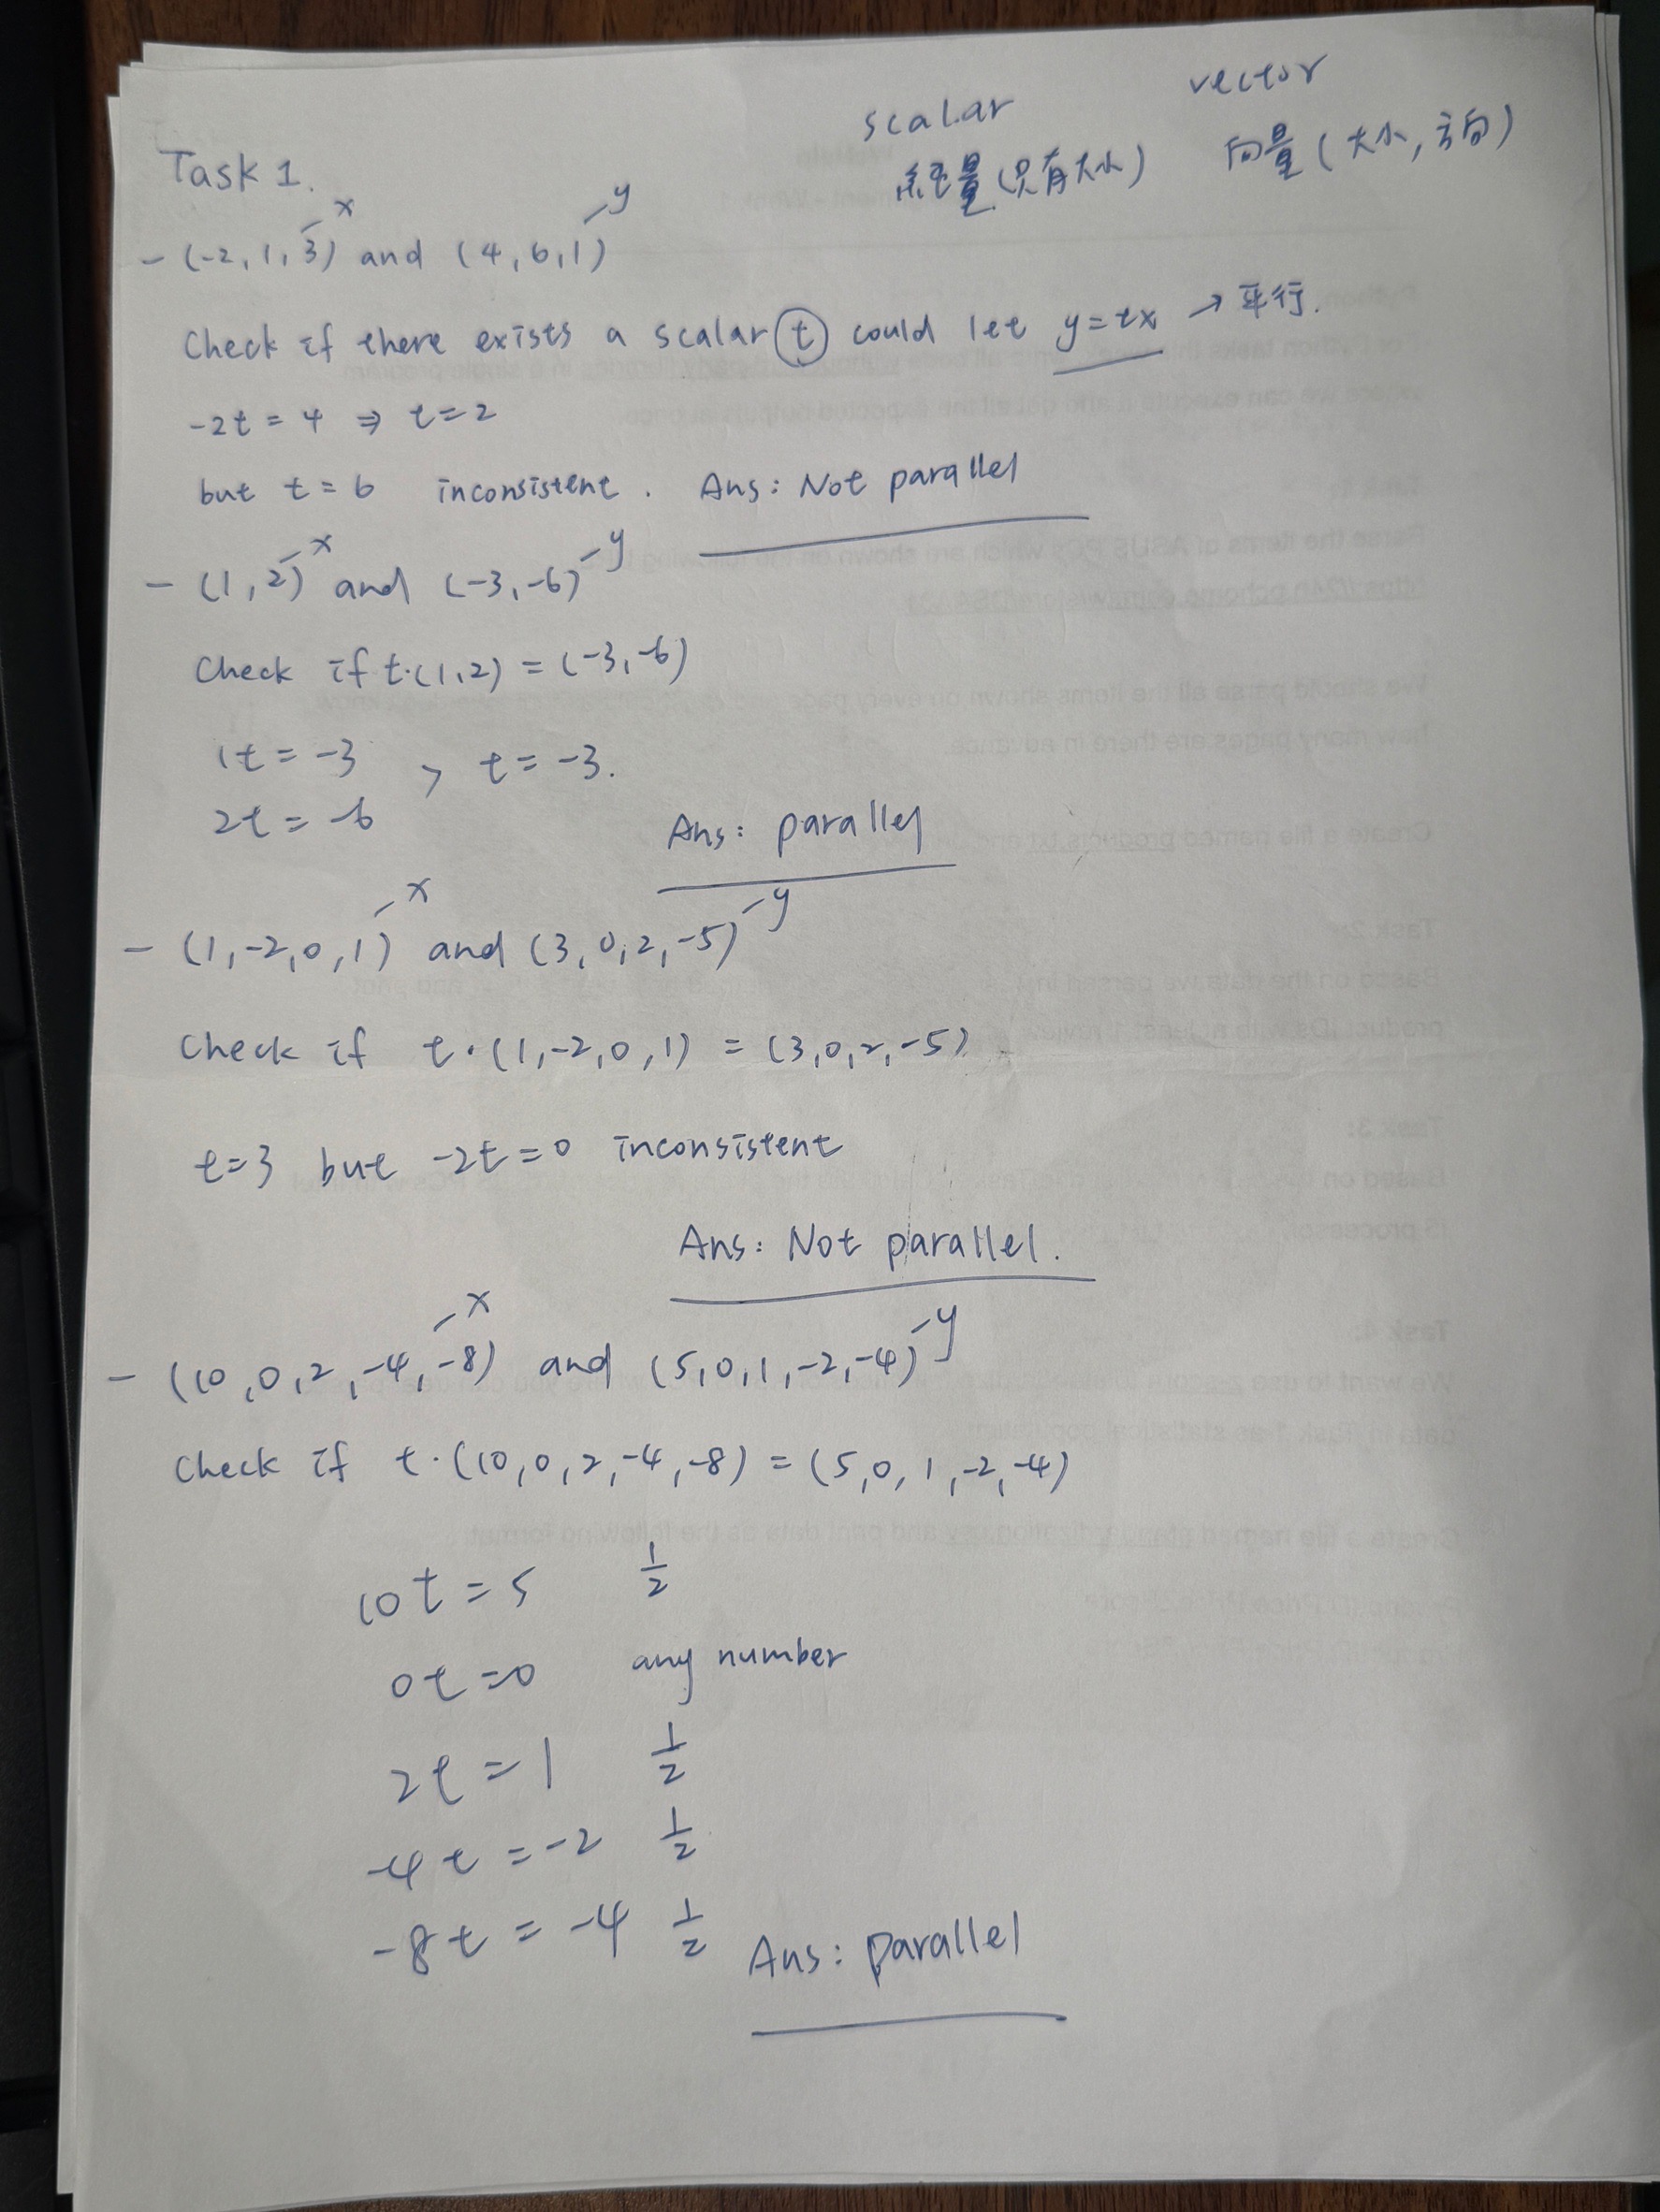 scalar vector
純量(只有大小) 向量(大小,方向)
Task 1.
x y
- (-2, 1, 3) and (4, 6, 1)
Check if there exists a scalar t could let y=tx → 平行.
-2t = 4 ⇒ t=2
but t = 6 inconsistent. Ans: Not parallel
x y
- (1, 2) and (-3, -6)
Check if t·(1,2) = (-3,-6)
1t = -3 , t = -3.
2t = -6
Ans: parallel
x y
- (1,-2,0,1) and (3,0,2,-5)
Check if t·(1,-2,0,1) = (3,0,2,-5)
t=3 but -2t=0 inconsistent
Ans: Not parallel.
x y
- (10,0,2,-4,-8) and (5,0,1,-2,-4)
Check if t·(10,0,2,-4,-8) = (5,0,1,-2,-4)
10t = 5 1/2
0t = 0 any number
2t = 1 1/2
-4t = -2 1/2
-8t = -4 1/2
Ans: parallel